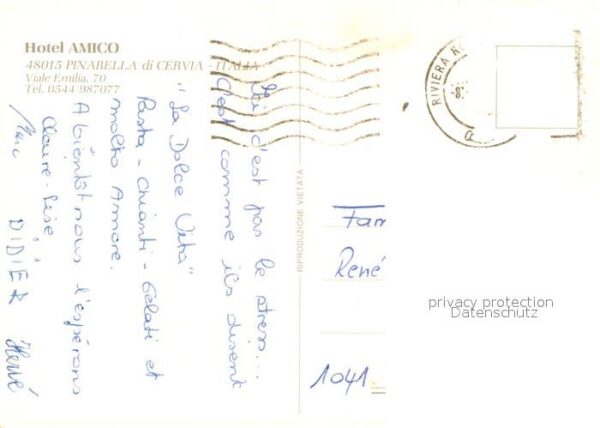 Hotel AMICO
48015 PINARELLA di CERVIA - ITALIA
Viale Emilia, 70
Tel. 0544 987077
Ici c'est pas le stress...
c'est comme ils disent
"La Dolce Vita"
Pasta - Chianti - Gelati et
molto Amore.
A bientôt nous l'espérons
Claire-Lise
Marc DIDIER Hervé
RIPRODUZIONE VIETATA
RIVIERA
Fam
René
1041
privacy protection
Datenschutz